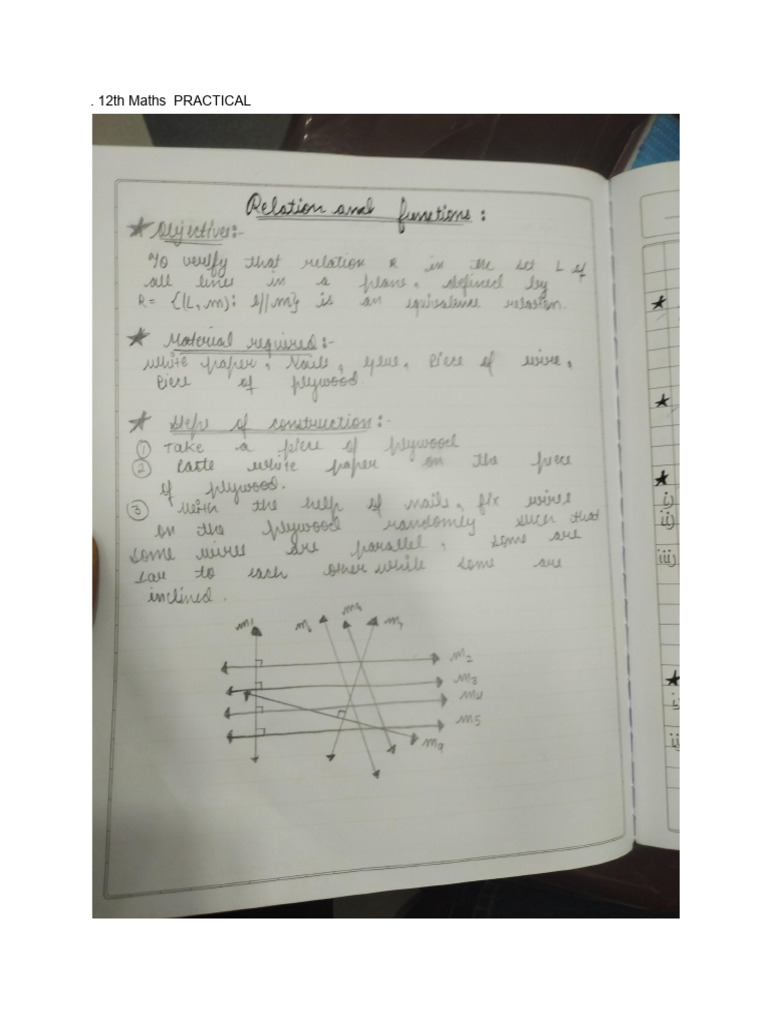 . 12th Maths PRACTICAL
Relation and functions :
★ Objective:-
To verify that relation R in the set L of
all lines in a plane, defined by
R = {(L, m): l//m} is an equivalence relation.
★ Material required:-
White paper, Nails, glue, Piece of wire,
Piece of plywood.
★ Steps of construction:-
① Take a piece of plywood
② Paste white paper on the piece
of plywood.
③ With the help of nails, fix wires
on the plywood randomly such that
some wires are parallel, some are
to each other while some are
inclined.
m1
m6
m8
m7
m2
m3
m4
m5
m9
★
★
★
i)
ii)
iii)
★
i)
ii